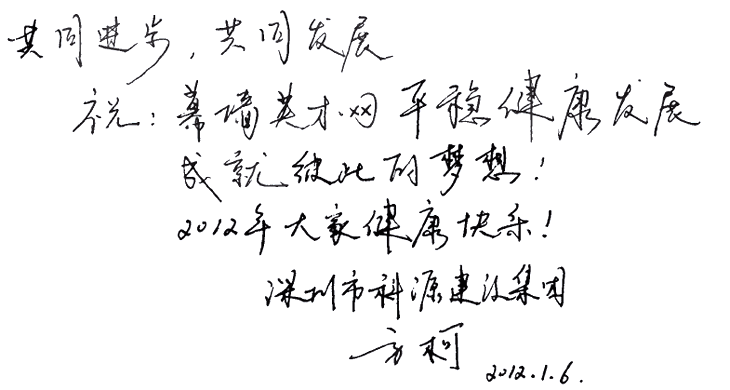 共同进步，共同发展
祝：幕墙英才网平稳健康发展
成就彼此的梦想！
2012年大家健康快乐！
深圳市科源建设集团
方柯
2012.1.6.